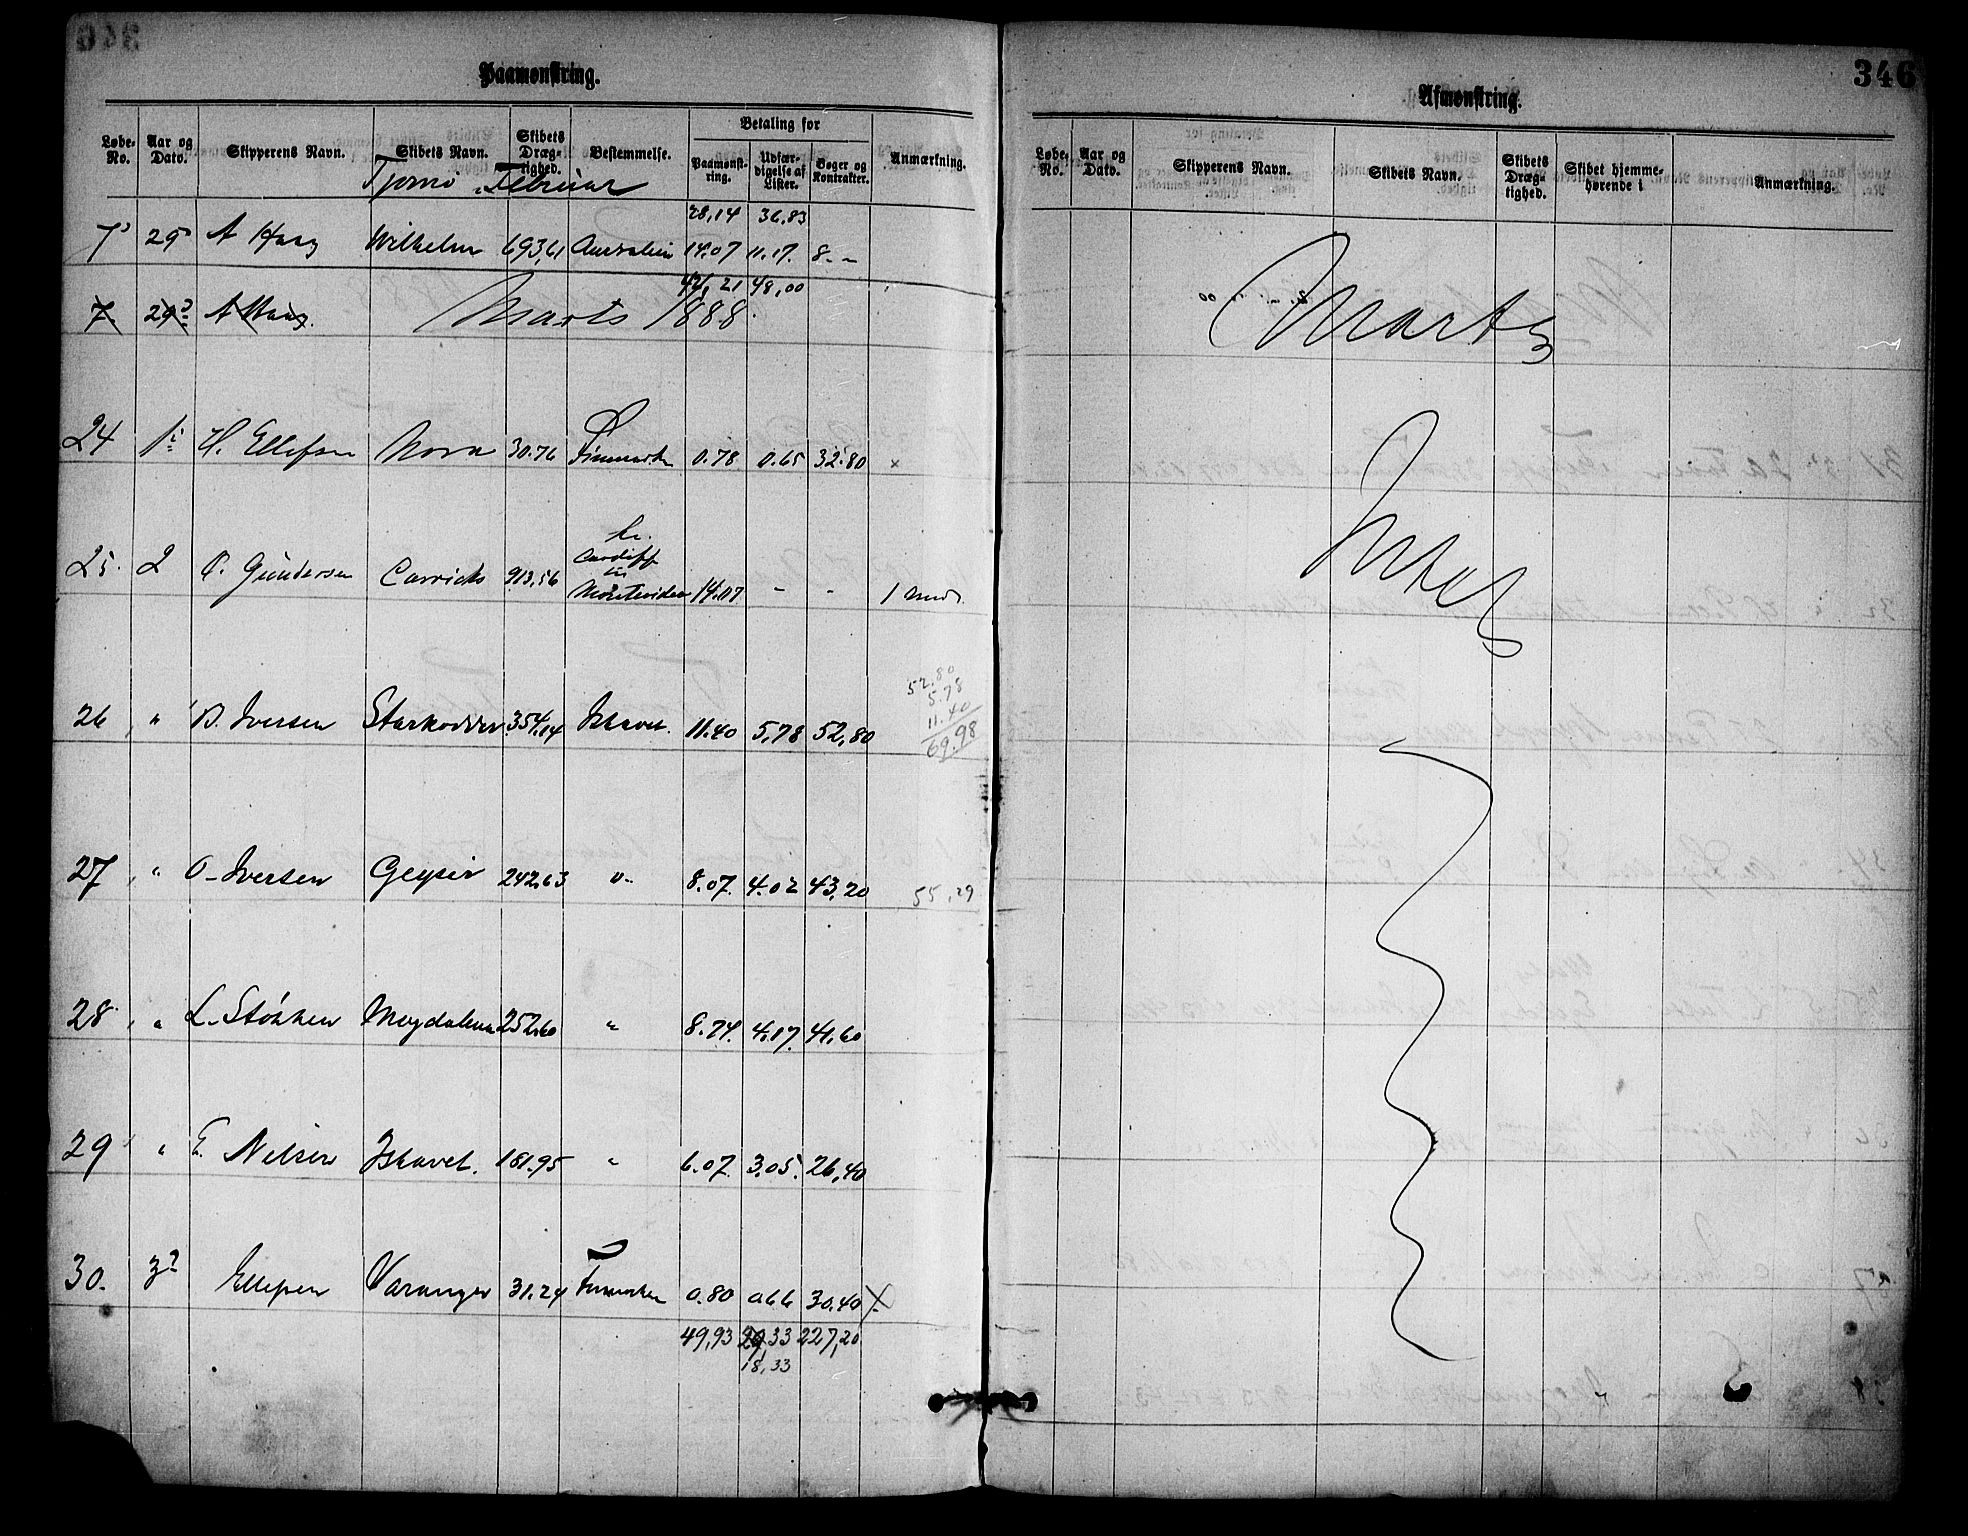 Paamønstring.
Løbe-No. Aar og Dato. Skipperens Navn. Skibets Navn. Skibets Dræg-tighed. Bestemmelse. Betaling for Paamønst-ring. Udfær-digelse af Lister. Bøger og Kontrakter. Anmærkning.
Tjømø Februar
28,14 36,83
7 25 A Haag Wilhelm 693,61 Australien 14.07 11.17. 8.-
42,21 48,00
7. 29 A Haag. Marts 1888.
24 1 H. Ellefsen Nora 30.76 Finmarken 0.78 0.65 32.80 ×
25. 2 O. Gundersen Carrick 913,56 Cardiff til Montevideo 14.07 - - 1 Mand.
52.80
5.78
11.40
69.98
26 " B. Iversen Starkodder 354,14 Ishavet. 11.40 5,78 52,80
27 " O. Iversen Geysir 242.63 " 8.07. 4.02 43,20 55,29
28 " L. Støkken Magdalena 252.60 " 8.74. 4.17. 41,60
29 " E. Nilsen Ishavet. 181.95 " 6.07. 3,05. 26,40
30. 3 Ellefsen Varanger 31.24 Finmarken 0.80 0.66 30.40 ×
49,93 29,33 227,20
18,33
346
Afmønstring.
Løbe-No. Aar og Dato. Skipperens Navn. Skibets Navn. Skibets Dræg-tighed. Skibet hjemme-hørende i Anmærkning.
Marts
Intet